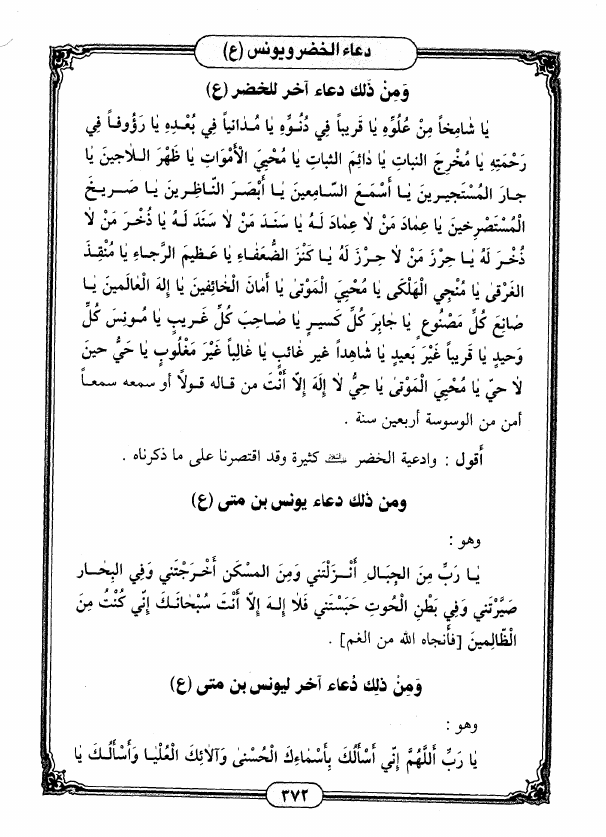 دعاء الخضر ويونس (ع)
وَمِنْ ذَلك دعاء آخر للخضر (ع)
يٰا شامِخاً مِنْ عُلُوِّهِ يٰا قَريباً فِي دُنُوِّهِ يٰا مُدٰانِياً فِي بُعْدِهِ يٰا رَؤُوفاً فِي
رَحْمَتِهِ يٰا مُخْرِجَ النباتِ يٰا دٰائِمَ الثباتِ يٰا مُحْيِيَ الأَمْوٰاتِ يٰا ظَهْرَ اللاجينَ يٰا
جارَ المُسْتَجيرينَ يٰا أَسْمَعَ السّامِعينَ يٰا أَبْصَرَ النّاظِرينَ يٰا صَريخَ
الْمُسْتَصْرِخينَ يٰا عِمادَ مَنْ لاٰ عِمادَ لَهُ يٰا سَنَدَ مَنْ لاٰ سَنَدَ لَهُ يٰا ذُخْرَ مَنْ لاٰ
ذُخْرَ لَهُ يٰا حِرْزَ مَنْ لاٰ حِرْزَ لَهُ يٰا كَنْزَ الضُّعَفٰاءِ يٰا عَظيمَ الرَّجٰاءِ يٰا مُنْقِذَ
الغَرْقىٰ يٰا مُنْجِي الْهَلْكَى يٰا مُحْيِيَ الْمَوْتىٰ يٰا أَمٰانَ الْخٰائِفينَ يٰا إِلهَ العٰالَمينَ يٰا
صٰانِعَ كُلِّ مَصْنُوعٍ يٰا جٰابِرَ كُلِّ كَسيرٍ يٰا صٰاحِبَ كُلِّ غَريبٍ يٰا مُونِسَ كُلِّ
وَحيدٍ يٰا قَريباً غَيْرَ بَعيدٍ يٰا شٰاهِداً غير غائبٍ يٰا غالِباً غَيْرَ مَغْلُوبٍ يٰا حَيُّ حينَ
لاٰ حيّ يٰا مُحْيِيَ الْمَوْتىٰ يٰا حيُّ لاٰ إِلَهَ إِلاّ أَنْتَ من قاله قولاً أو سمعه سمعاً
أمن من الوسوسة أربعين سنة .
أَقول : وادعية الخضر كثيرة وقد اقتصرنا على ما ذكرناه .
ومن ذلك دعاء يونس بن متى (ع)
وهو :
يٰا رَبِّ مِنَ الجِبٰالِ أَنْزَلْتَني وَمِنَ المَسْكَنِ أَخْرَجْتَني وَفِي البِحٰارِ
صَيَّرْتَني وَفِي بَطْنِ الْحُوتِ حَبَسْتَني فَلاٰ إِلهَ إِلاّ أَنْتَ سُبْحٰانَكَ إِنّي كُنْتُ مِنَ
الْظّالِمينَ [فأنجاه الله من الغم] .
وَمِنْ ذلِكَ دُعاء آخر ليونس بن متى (ع)
وهو :
يٰا رَبِّ أَللَّهُمَّ إِنّي أَسْأَلُكَ بِأَسْمٰاءِكَ الْحُسْنىٰ وَآلاٰئِكَ الْعُلْيٰا وَأَسْأَلُكَ يٰا
٣٧٢